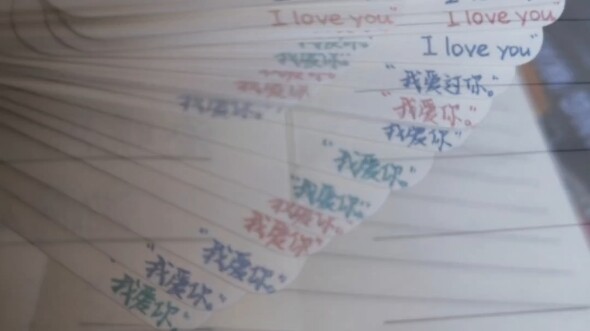 I love you"
I love you"
I love you"
"我爱过你。"
"我爱你。"
我爱你"
我爱你。
我爱你。
"我爱你。"
"我爱你。"
我爱你
我爱你"
"我爱你。"
"我爱你。"
我爱你。"